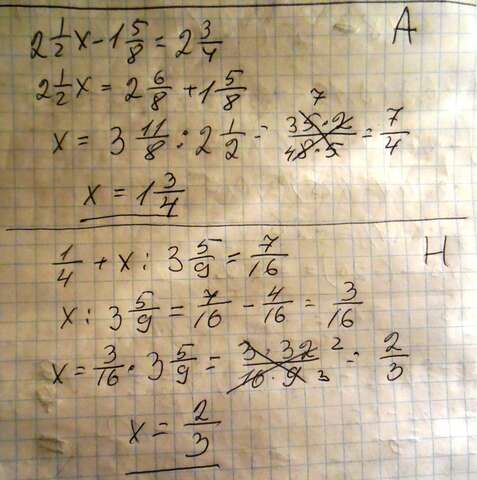 2 1/2 x - 1 5/8 = 2 3/4 A
2 1/2 x = 2 6/8 + 1 5/8
x = 3 11/8 : 2 1/2 = 35·2/8·5 7 4 = 7/4
x = 1 3/4
1/4 + x : 3 5/9 = 7/16 H
x : 3 5/9 = 7/16 - 4/16 = 3/16
x = 3/16 · 3 5/9 = 3·32/16·9 2 3 = 2/3
x = 2/3